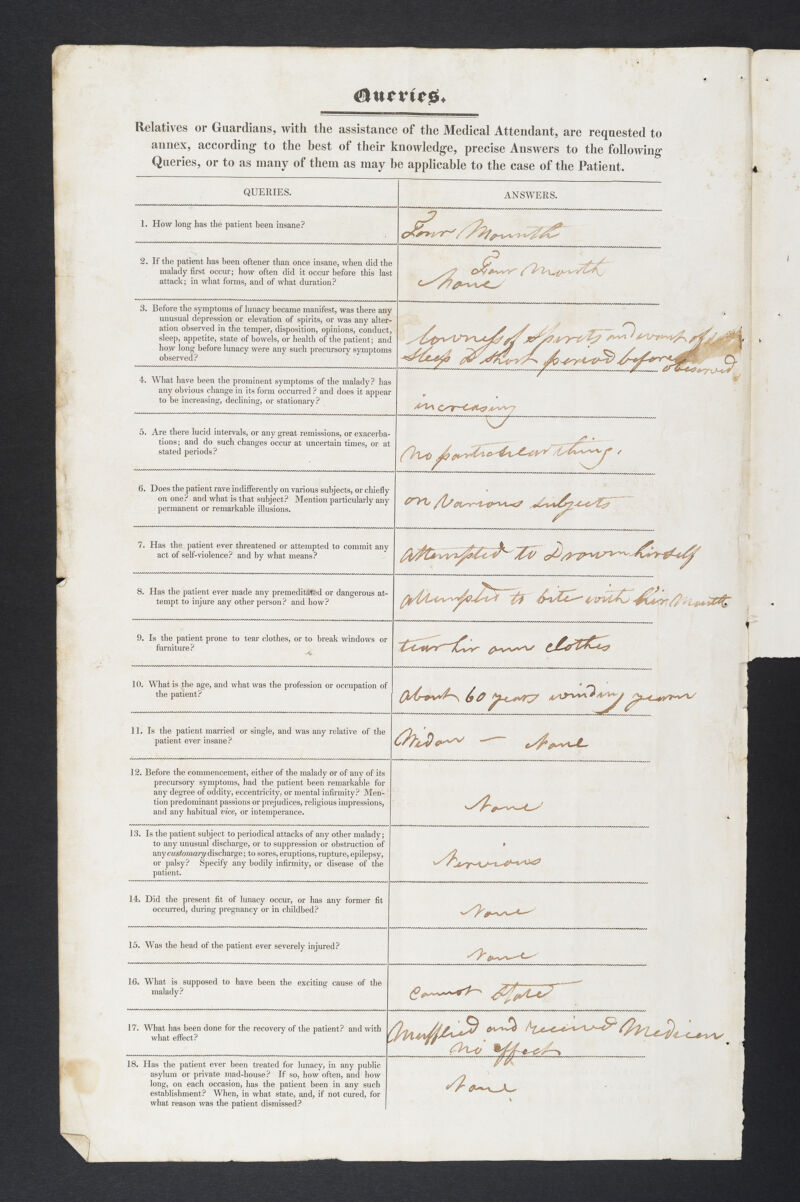 Queries.
Relatives or Guardians, with the assistance of the Medical Attendant, are requested to
annex, according to the best of their knowledge, precise Answers to the following
Queries, or to as many of them as may be applicable to the case of the Patient.
QUERIES.
ANSWERS.
1. How long has the patient been insane?
Four Mounth
2. If the patient has been oftener than once insane, when did the
malady first occur; how often did it occur before this last
attack; in what forms, and of what duration?
Four Mounth
None
3. Before the symptoms of lunacy became manifest, was there any
unusual depression or elevation of spirits, or was any alter-
ation observed in the temper, disposition, opinions, conduct,
sleep, appetite, state of bowels, or health of the patient; and
how long before lunacy were any such precursory symptoms
observed?
lowness of Spirits and want of
Sleep a Short period before
observed
4. What have been the prominent symptoms of the malady? has
any obvious change in its form occurred? and does it appear
to be increasing, declining, or stationary?
increasing
5. Are there lucid intervals, or any great remissions, or exacerba-
tions; and do such changes occur at uncertain times, or at
stated periods?
No particular thing.
6. Does the patient rave indifferently on various subjects, or chiefly
on one? and what is that subject? Mention particularly any
permanent or remarkable illusions.
on Various subjects
7. Has the patient ever threatened or attempted to commit any
act of self-violence? and by what means?
attempted to Drown hirself
8. Has the patient ever made any premeditated or dangerous at-
tempt to injure any other person? and how?
attempted to bite with hir Mouth
9. Is the patient prone to tear clothes, or to break windows or
furniture?
tear hir own clothes
10. What is the age, and what was the profession or occupation of
the patient?
about 60 years winding yearn
11. Is the patient married or single, and was any relative of the
patient ever insane?
Widow — None
12. Before the commencement, either of the malady or of any of its
precursory symptoms, had the patient been remarkable for
any degree of oddity, eccentricity, or mental infirmity? Men-
tion predominant passions or prejudices, religious impressions,
and any habitual vice, or intemperance.
None
13. Is the patient subject to periodical attacks of any other malady;
to any unusual discharge, or to suppression or obstruction of
any customary discharge; to sores, eruptions, rupture, epilepsy,
or palsy? Specify any bodily infirmity, or disease of the
patient.
Nervious
14. Did the present fit of lunacy occur, or has any former fit
occurred, during pregnancy or in childbed?
None
15. Was the head of the patient ever severely injured?
None
16. What is supposed to have been the exciting cause of the
malady?
Cannot State
17. What has been done for the recovery of the patient? and with
what effect?
and received Medicen
No effect
18. Has the patient ever been treated for lunacy, in any public
asylum or private mad-house? If so, how often, and how
long, on each occasion, has the patient been in any such
establishment? When, in what state, and, if not cured, for
what reason was the patient dismissed?
None